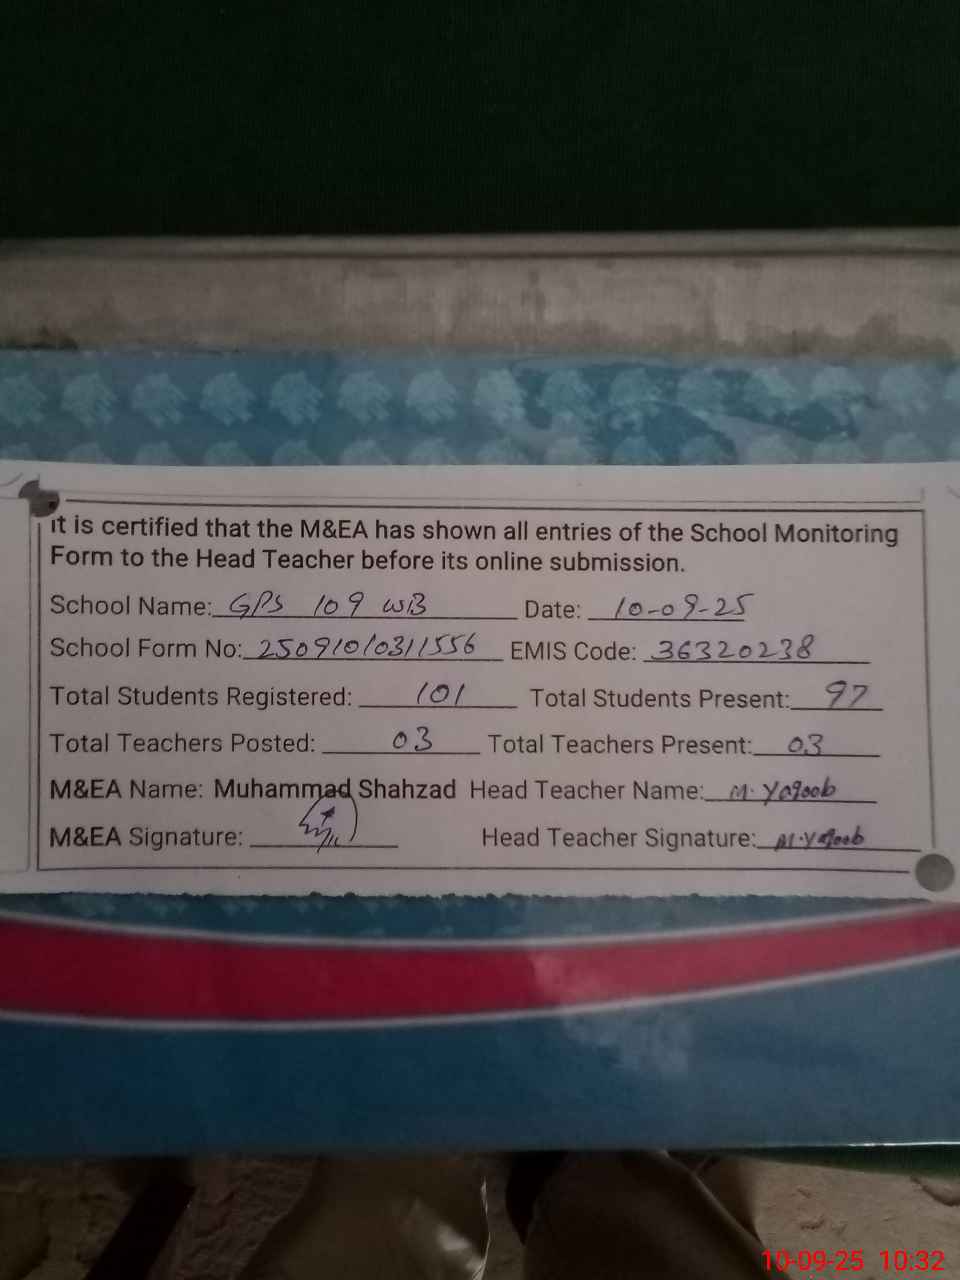 It is certified that the M&EA has shown all entries of the School Monitoring
Form to the Head Teacher before its online submission.
School Name: GPS 109 WB Date: 10-09-25
School Form No: 25091010311556 EMIS Code: 36320238
Total Students Registered: 101 Total Students Present: 97
Total Teachers Posted: 03 Total Teachers Present: 03
M&EA Name: Muhammad Shahzad Head Teacher Name: M. Yaqoob
M&EA Signature: Head Teacher Signature: M.Yaqoob
10-09-25 10:32